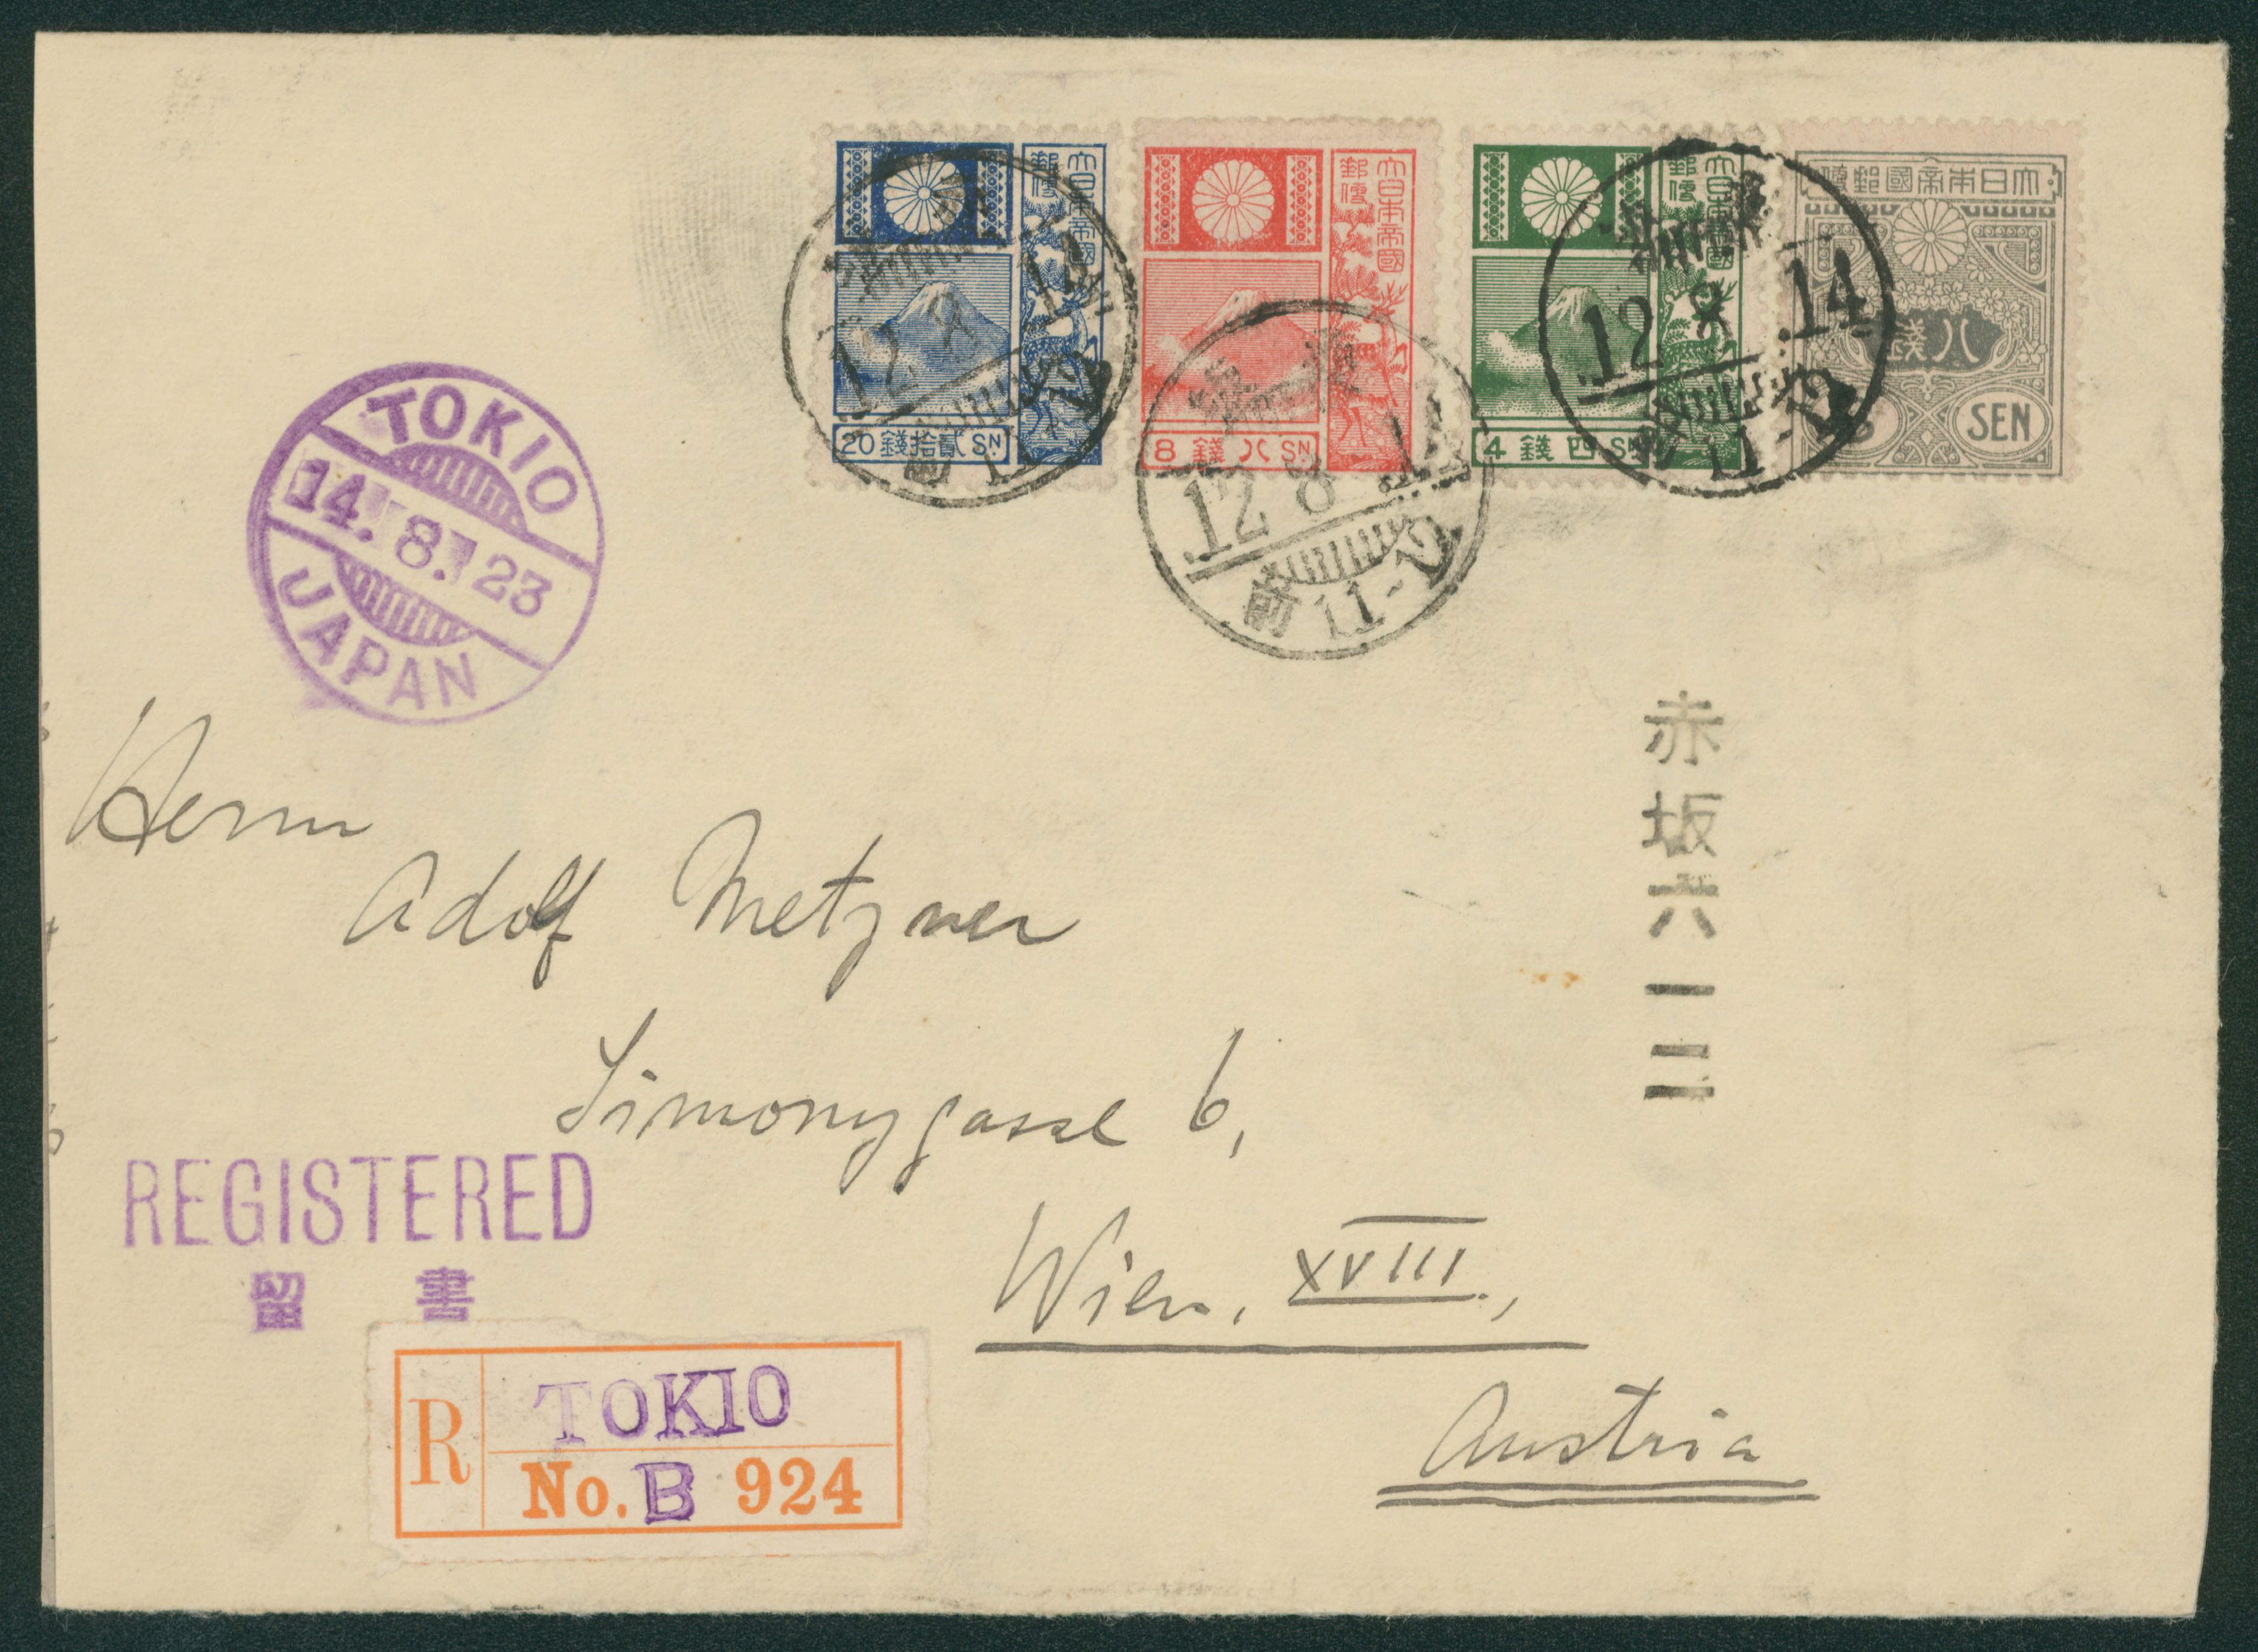 大日本帝國
郵便
20 錢拾貳 SN
大日本帝國
郵便
8 錢八 SN
大日本帝國
郵便
4 錢四 SN
大日本帝國郵便
八錢
SEN
12 8 14
12 8 14
前 11-12
12. 8. 14
11-12
TOKIO
14. 8. 23
JAPAN
赤坂六一二
Herrn
Adolf Metzner
Simonygasse 6,
Wien, XVIII.,
Austria
REGISTERED
留 書
R TOKIO
No. B 924